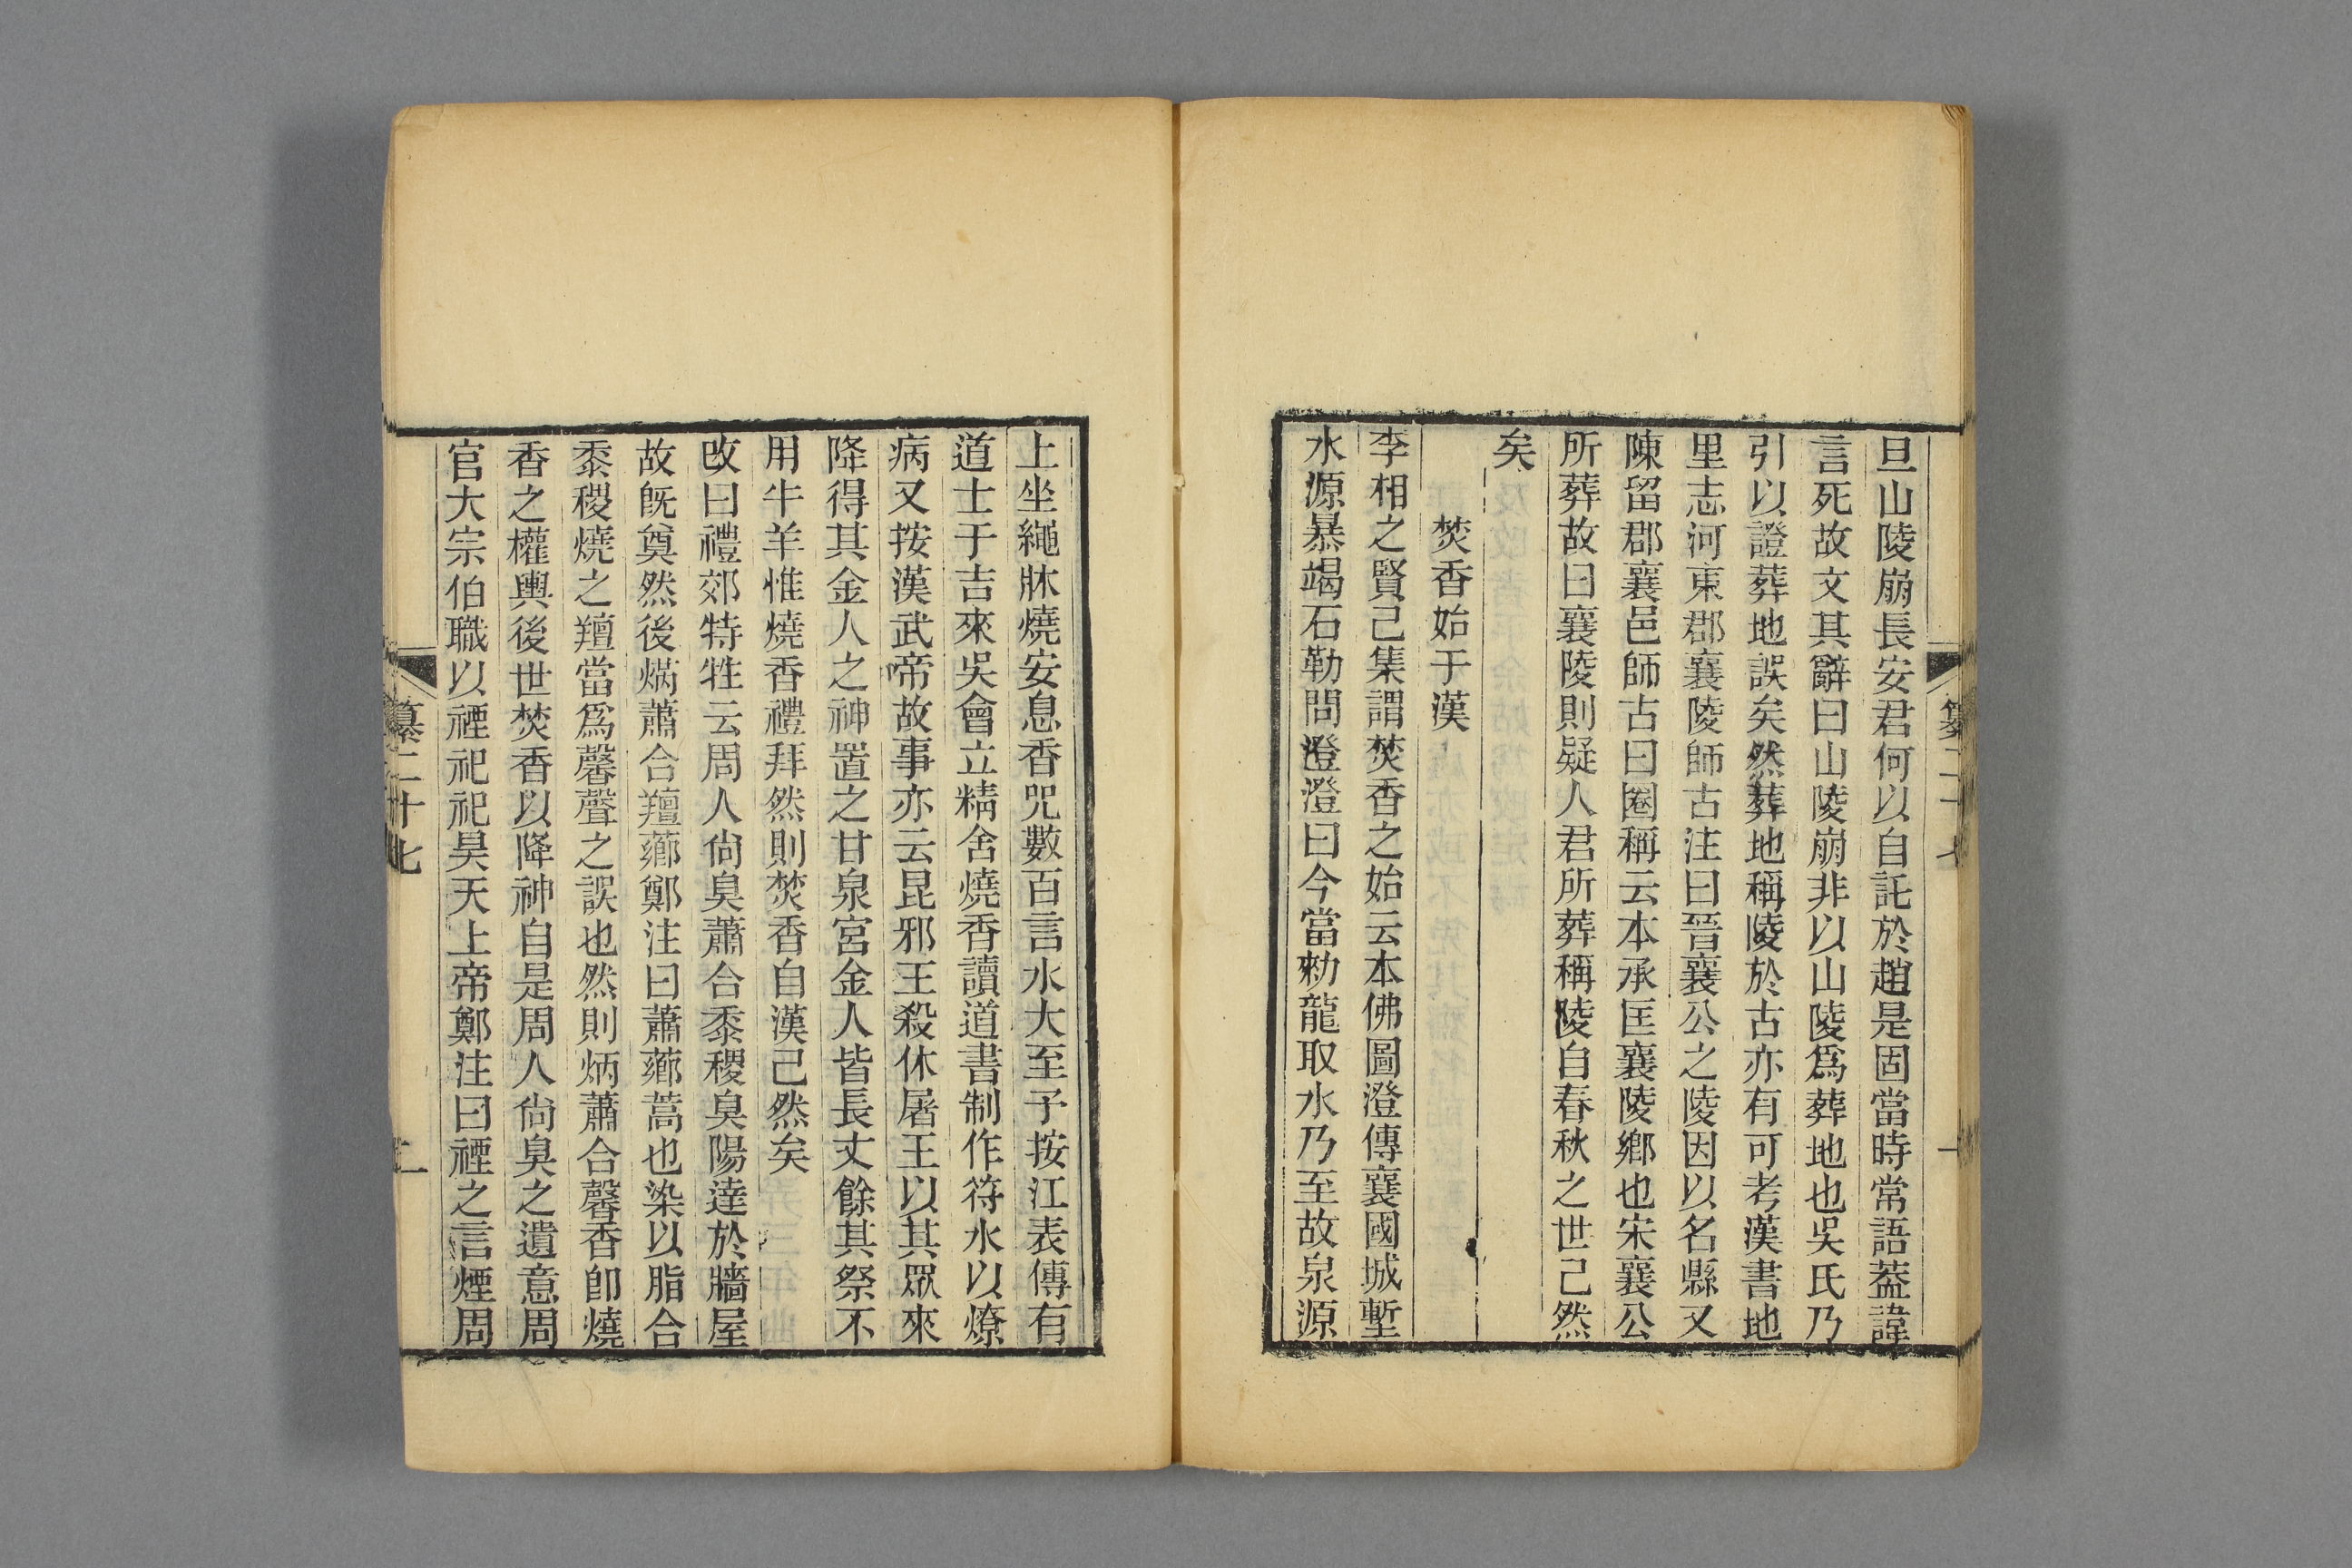 旦山陵崩長安君何以自託於趙是固當時常語葢諱
言死故文其辭曰山陵崩非以山陵爲葬地也吳氏乃
引以證葬地誤矣然葬地稱陵於古亦有可考漢書地
里志河東郡襄陵師古注曰晉襄公之陵因以名縣又
陳留郡襄邑師古曰圈稱云本承匡襄陵鄉也宋襄公
所葬故曰襄陵則疑人君所葬稱陵自春秋之世己然
矣
焚香始于漢
李相之賢己集謂焚香之始云本佛圖澄傳襄國城塹
水源暴竭石勒問澄澄曰今當勑龍取水乃至故泉源
上坐繩牀燒安息香咒數百言水大至予按江表傳有
道士于吉來吳會立精舍燒香讀道書制作符水以療
病又按漢武帝故事亦云昆邪王殺休屠王以其眾來
降得其金人之神置之甘泉宮金人皆長丈餘其祭不
用牛羊惟燒香禮拜然則焚香自漢己然矣
攺曰禮郊特牲云周人尙臭蕭合黍稷臭陽達於牆屋
故旣奠然後焫蕭合羶薌鄭注曰蕭薌蒿也染以脂合
黍稷燒之羶當爲馨聲之誤也然則炳蕭合馨香卽燒
香之權輿後世焚香以降神自是周人尙臭之遺意周
官大宗伯職以禋祀祀昊天上帝鄭注曰禋之言煙周
纂二十七
二